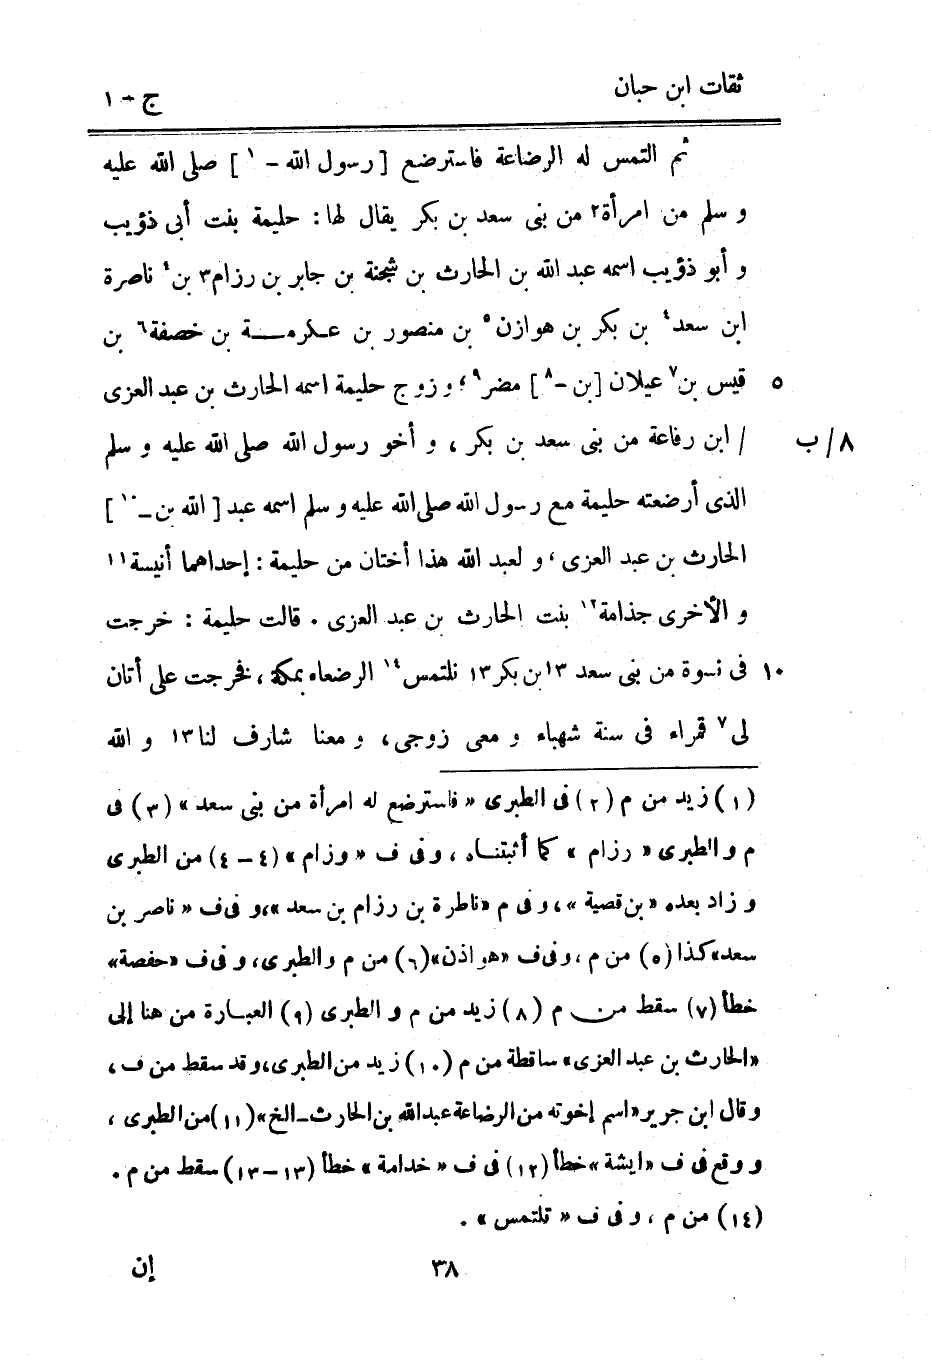 ثقات ابن حبان ج - ١
ثم التمس له الرضاعة فاسترضع [ رسول الله - ١ ] صلى الله عليه
و سلم من امرأة٢ من بنى سعد بن بكر يقال لها : حليمة بنت أبى ذؤيب
و أبو ذؤيب اسمه عبد الله بن الحارث بن شجنة بن جابر بن رزام٣ بن٤ ناصرة
ابن سعد٤ بن بكر بن هوازن٥ بن منصور بن عكرمة بن خصفة٦ بن
٥ قيس بن٧ عيلان [بن -٨ ] مضر٩ ؛ و زوج حليمة اسمه الحارث بن عبد العزى
٨/ب / ابن رفاعة من بنى سعد بن بكر ، و أخو رسول الله صلى الله عليه و سلم
الذى أرضعته حليمة مع رسول الله صلى الله عليه و سلم اسمه عبد [ الله بن -١٠ ]
الحارث بن عبد العزى ، و لعبد الله هذا أختان من حليمة : إحداهما أنيسة١١
و الأخرى جذامة١٢ بنت الحارث بن عبد العزى . قالت حليمة : خرجت
١٠ فى نسوة من بنى سعد ١٣بن بكر١٣ نلتمس١٤ الرضعاء بمكة ، فخرجت على أتان
لى٧ قمراء فى سنة شهباء و معى زوجى، و معنا شارف لنا١٣ و الله
(١) زيد من م (٢) فى الطبرى « فاسترضع له امرأة من بنى سعد » (٣) فى
م و الطبرى « رزام » كما أثبتناه ، و فى ف « وزام » (٤ - ٤) من الطبرى
و زاد بعده «بن قصية »، و فى م «ناطرة بن رزام بن سعد »،و فى ف « ناصر بن
سعد» كذا (٥) من م ، و فى ف «هواذن»(٦) من م و الطبرى، و فى ف «حفصة»
خطأ (٧) سقط من م (٨) زيد من م و الطبرى (٩) العبارة من هنا إلى
«الحارث بن عبد العزى» ساقطة من م (١٠) زيد من الطبرى،و قد سقط من ف ،
و قال ابن جرير «اسم إخوته من الرضاعة عبد الله بن الحارث ـ الخ»(١١)من الطبرى ،
و وقع فى ف «ايشة »خطأ (١٢) فى ف « خدامة » خطأ (١٣-١٣) سقط من م .
(١٤) من م ، و فى ف « تلتمس » .
٣٨ إن